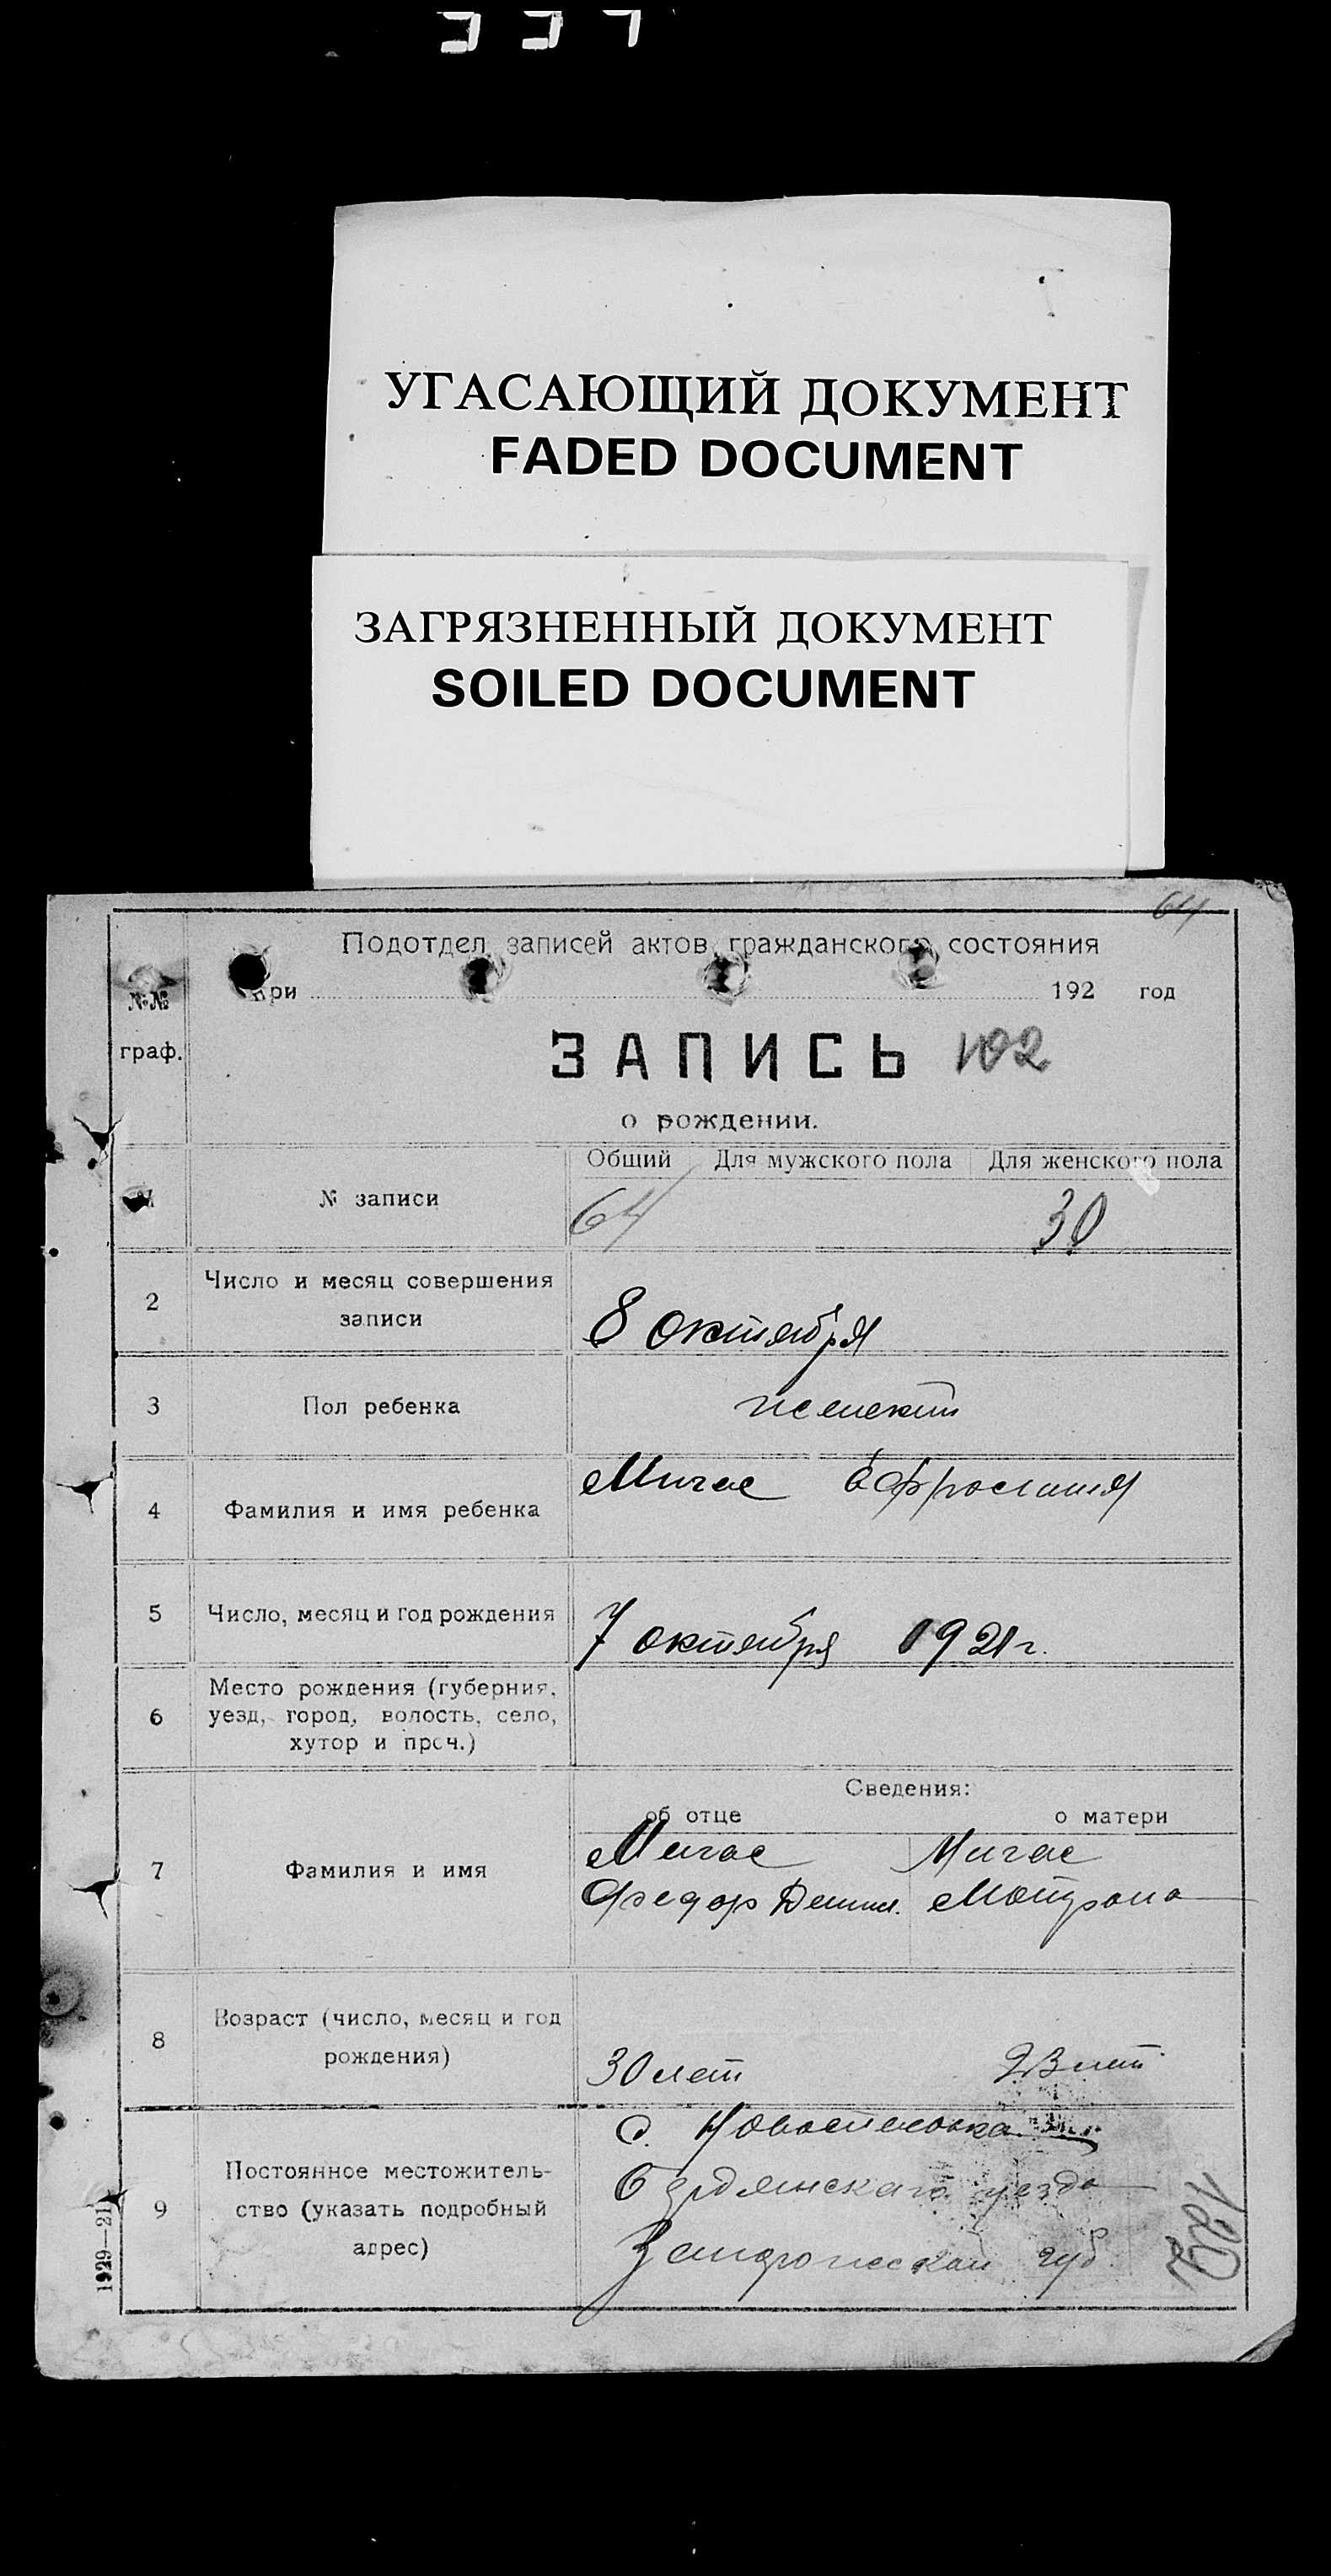 УГАСАЮЩИЙ ДОКУМЕНТ
FADED DOCUMENT
ЗАГРЯЗНЕННЫЙ ДОКУМЕНТ
SOILED DOCUMENT
64
Подотдел записей актов гражданского состояния
№№ граф.
при 192 год
ЗАПИСЬ 102
о рождении.
Общий Для мужского пола Для женского пола
1 № записи 64 30
2 Число и месяц совершения
записи 8 октября
3 Пол ребенка женский
4 Фамилия и имя ребенка Мигас Ефросиния
5 Число, месяц и год рождения 7 октября 1921 г.
6 Место рождения (губерния,
уезд, город, волость, село,
хутор и проч.)
Сведения:
об отце о матери
7 Фамилия и имя Мигас Мигас
Федор Матрона
8 Возраст (число, месяц и год
рождения) 30 лет лет
9 Постоянное местожитель-
ство (указать подробный
адрес)
с.
Бердянскаго уезда
губ.
1929—21